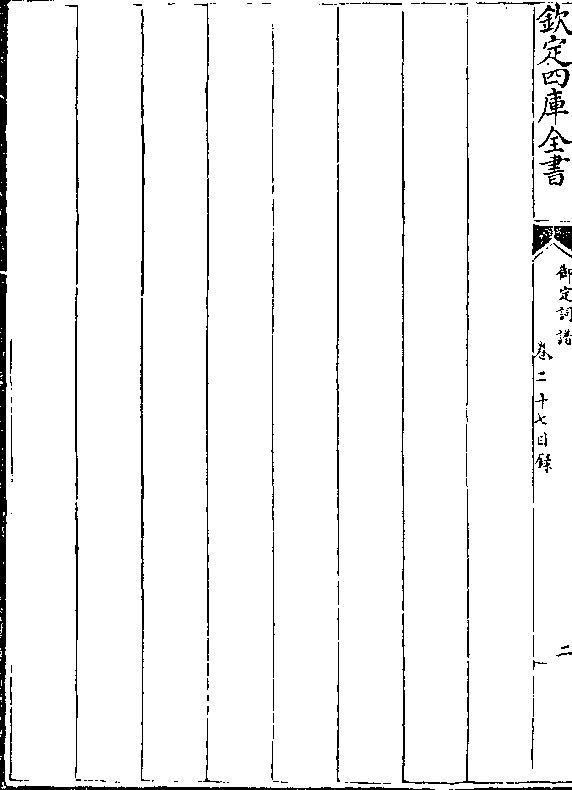 欽定四庫全書
御定詞譜
卷二十七目録
二